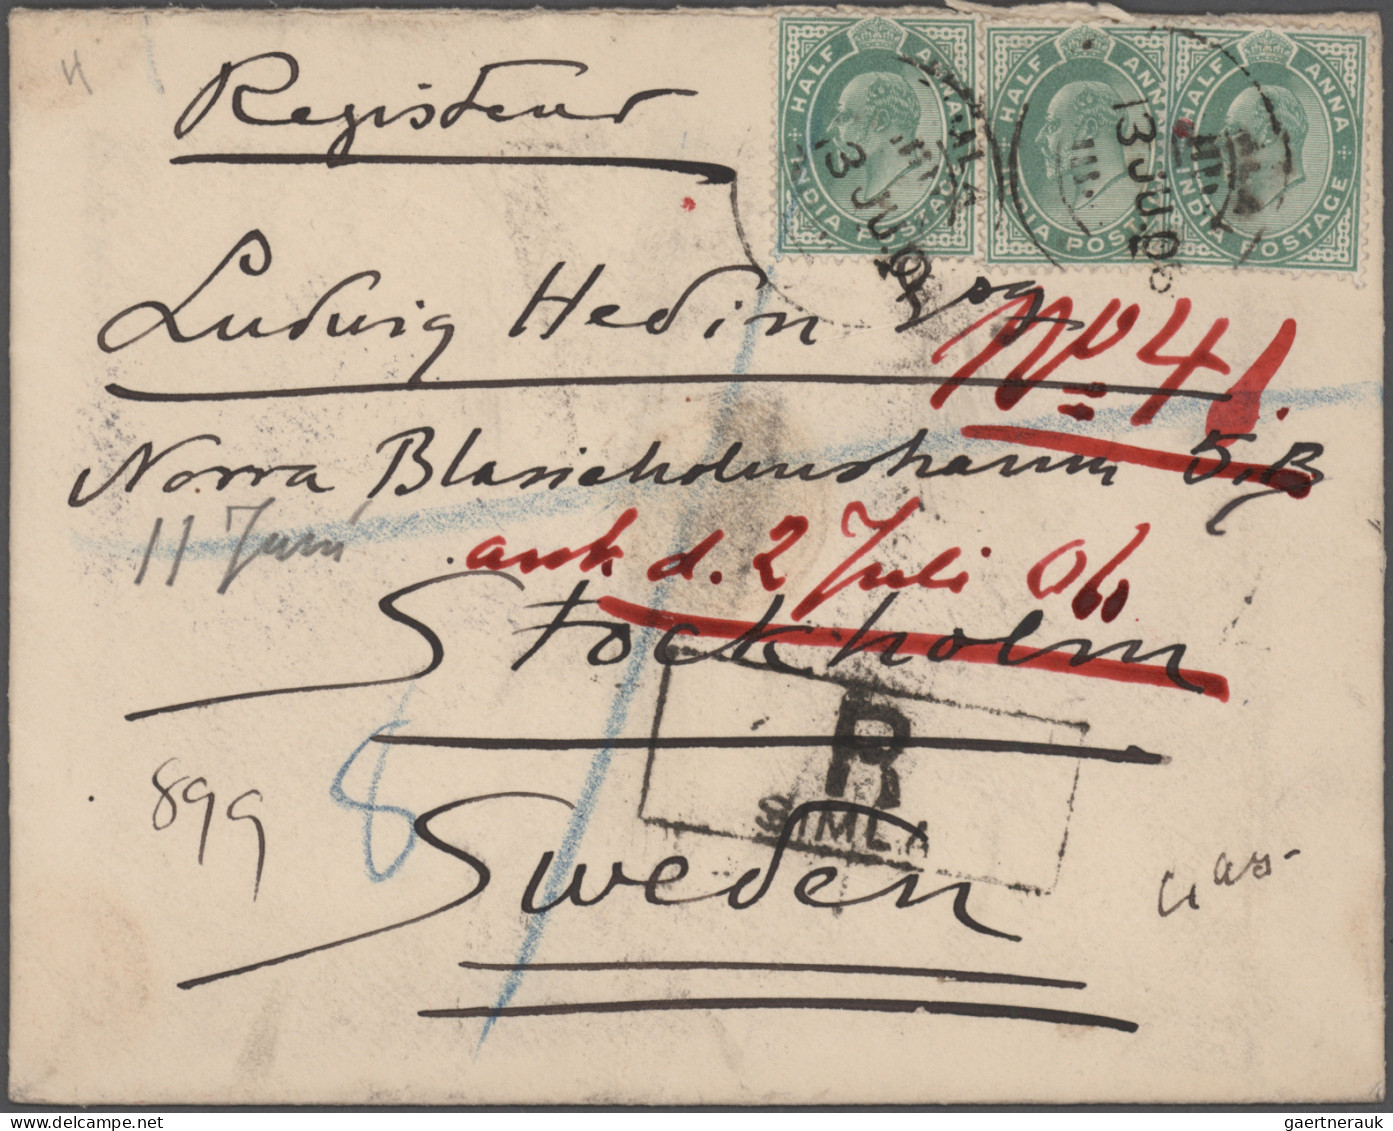 HALF ANNA
INDIA POSTAGE
HALF ANNA
INDIA POSTAGE
HALF ANNA
INDIA POSTAGE
SIMLA
13 JU.06
13 JU.06
Registerd
Ludwig Hedin
Nº 41.
Norra Blasieholmshamn 5,B
11 Juni
ank d. 2 Juli 06
Stockholm
R
SIMLA
8
899
Sweden
gaertnerauk